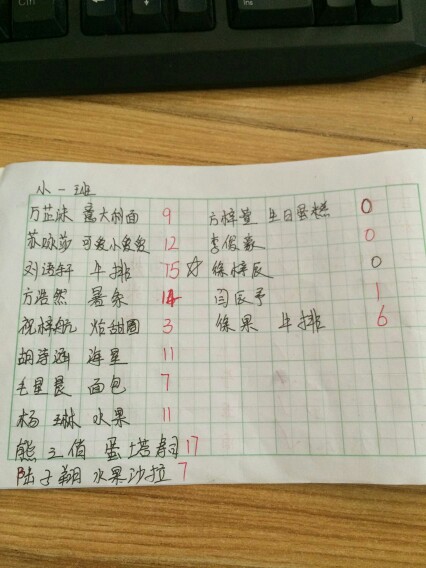 小一班
万芷涵 意大利面 9 方梓萱 生日蛋糕 0
苏咏莎 可爱小兔兔 12 李俊豪 0
刘语轩 牛排 15 ☆ 徐梓辰 0
方浩然 薯条 14 闫辰予 1
祝梓航 炸甜圈 3 徐果 牛排 6
胡诗涵 海星 11
毛星晨 面包 7
杨琳 水果 11
熊 俏 蛋塔寿司 17
陆子翔 水果沙拉 7